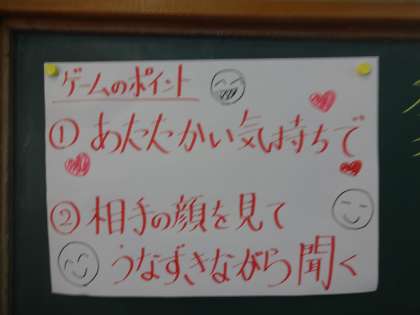 ゲームのポイント
① あたたかい気持ちで
② 相手の顔を見て
うなずきながら聞く